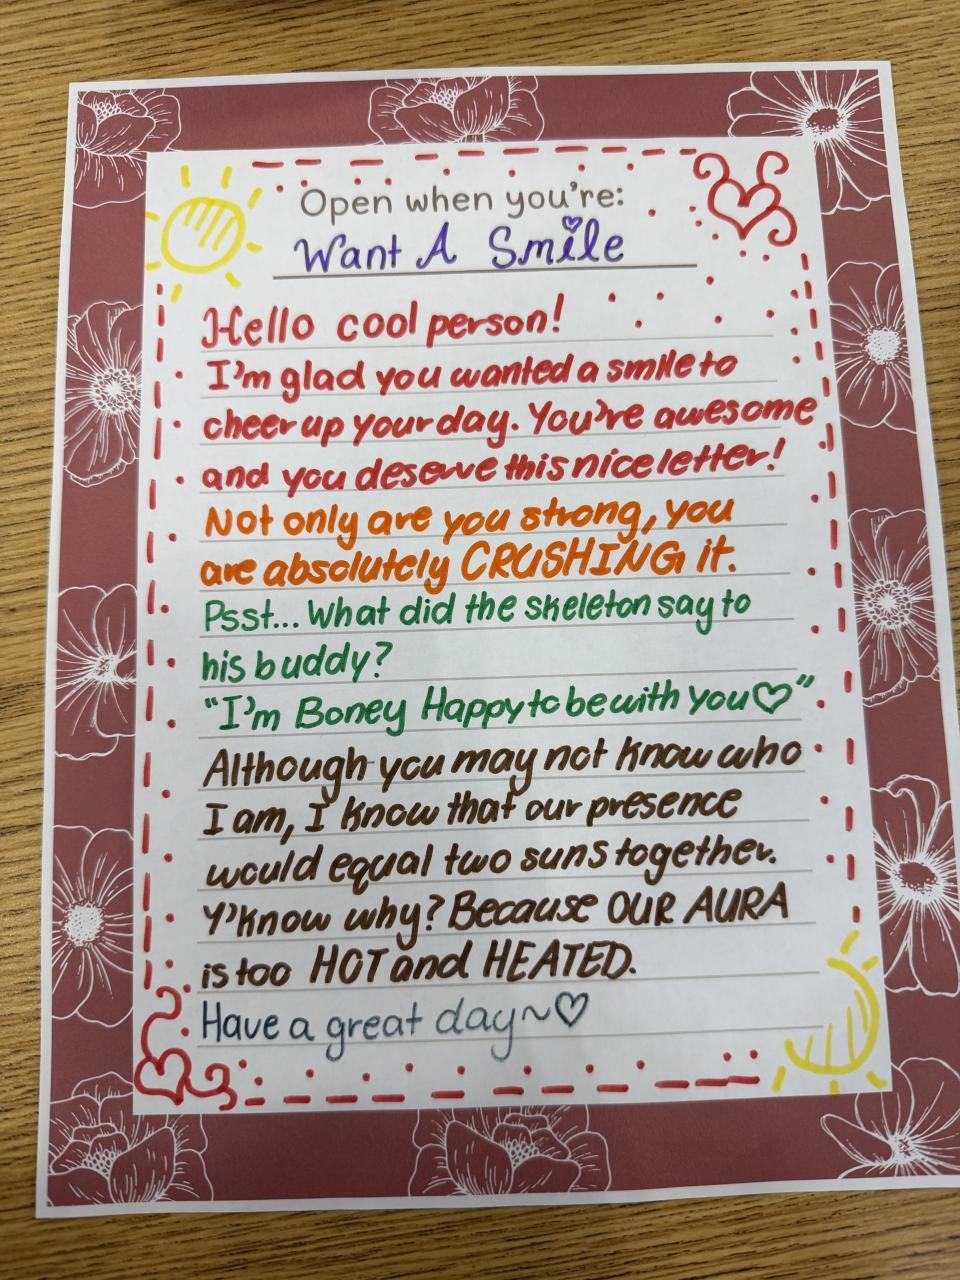 Open when you're:
Want A Smile
Hello cool person!
I'm glad you wanted a smile to
cheer up your day. You're awesome
and you deserve this nice letter!
Not only are you strong, you
are absolutely CRUSHING it.
Psst... What did the skeleton say to
his buddy?
"I'm Boney Happy to be with you♡"
Although you may not know who
I am, I know that our presence
would equal two suns together.
Y'know why? Because OUR AURA
is too HOT and HEATED.
Have a great day~♡